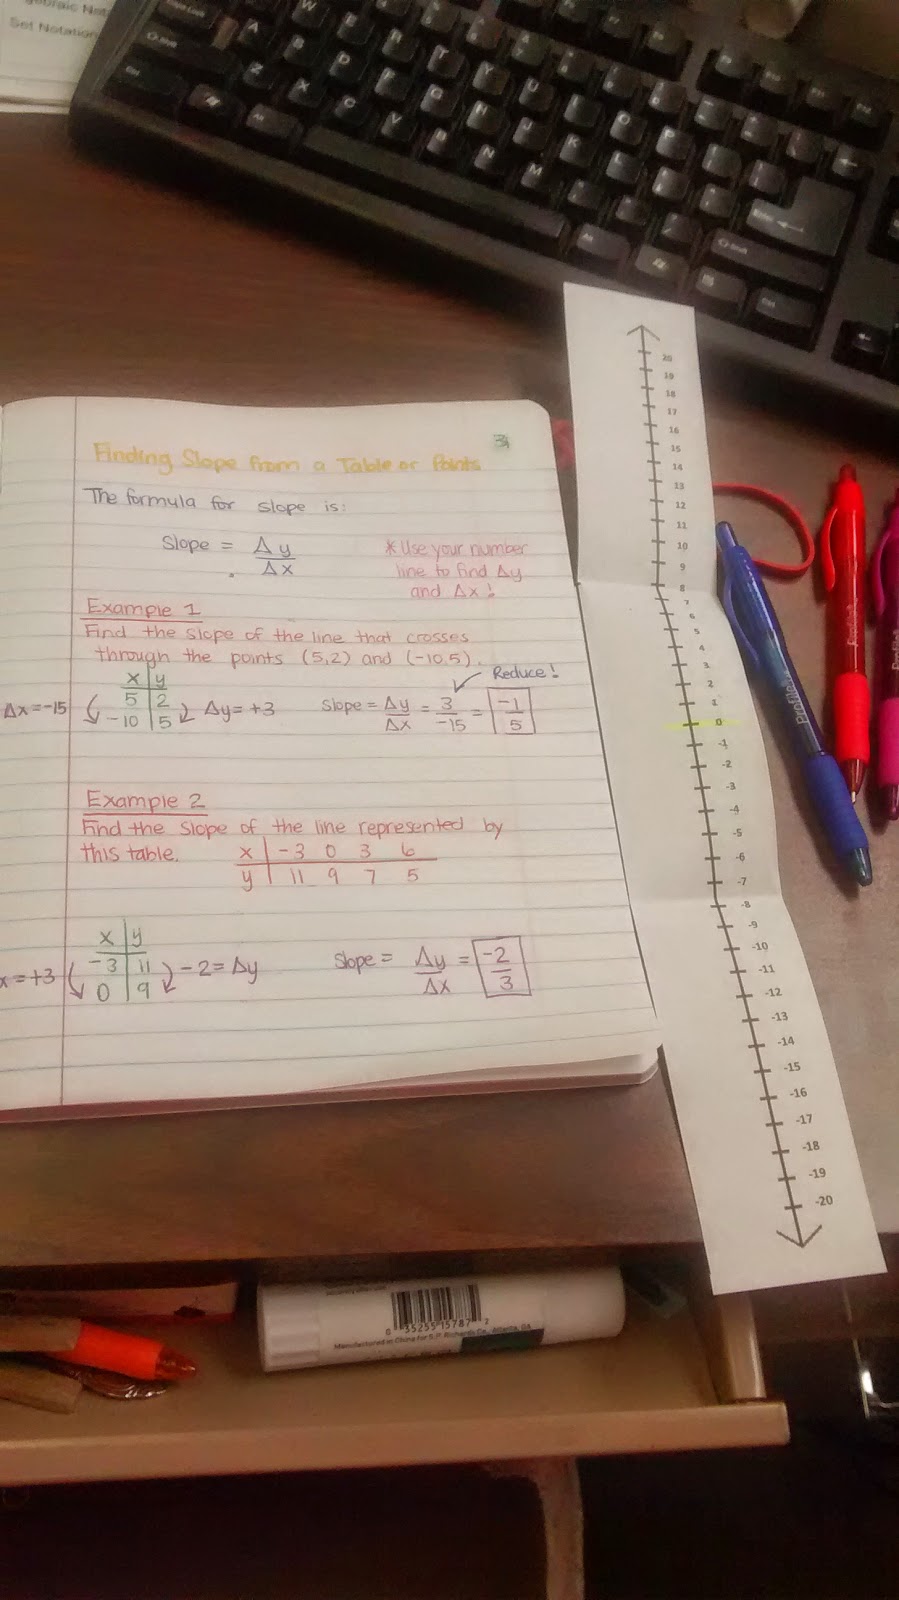 Set Notation
3
Finding Slope from a Table or Points
The formula for slope is:
Slope = Δy
Δx
*Use your number
line to find Δy
and Δx!
Example 1
Find the slope of the line that crosses
through the points (5,2) and (-10,5).
x y
5 2
-10 5
Δx=-15
Δy=+3
Reduce!
Slope = Δy = 3 = -1
Δx -15 5
Example 2
Find the slope of the line represented by
this table.
x -3 0 3 6
y 11 9 7 5
x y
-3 11
0 9
x=+3
-2=Δy
Slope = Δy = -2
Δx 3
20
19
18
17
16
15
14
13
12
11
10
9
8
7
6
5
4
3
2
1
0
-1
-2
-3
-4
-5
-6
-7
-8
-9
-10
-11
-12
-13
-14
-15
-16
-17
-18
-19
-20
Profile
Profile
Profile
0 35255 15787 2
Manufactured in China for S.P. Richards Co., Atlanta, GA